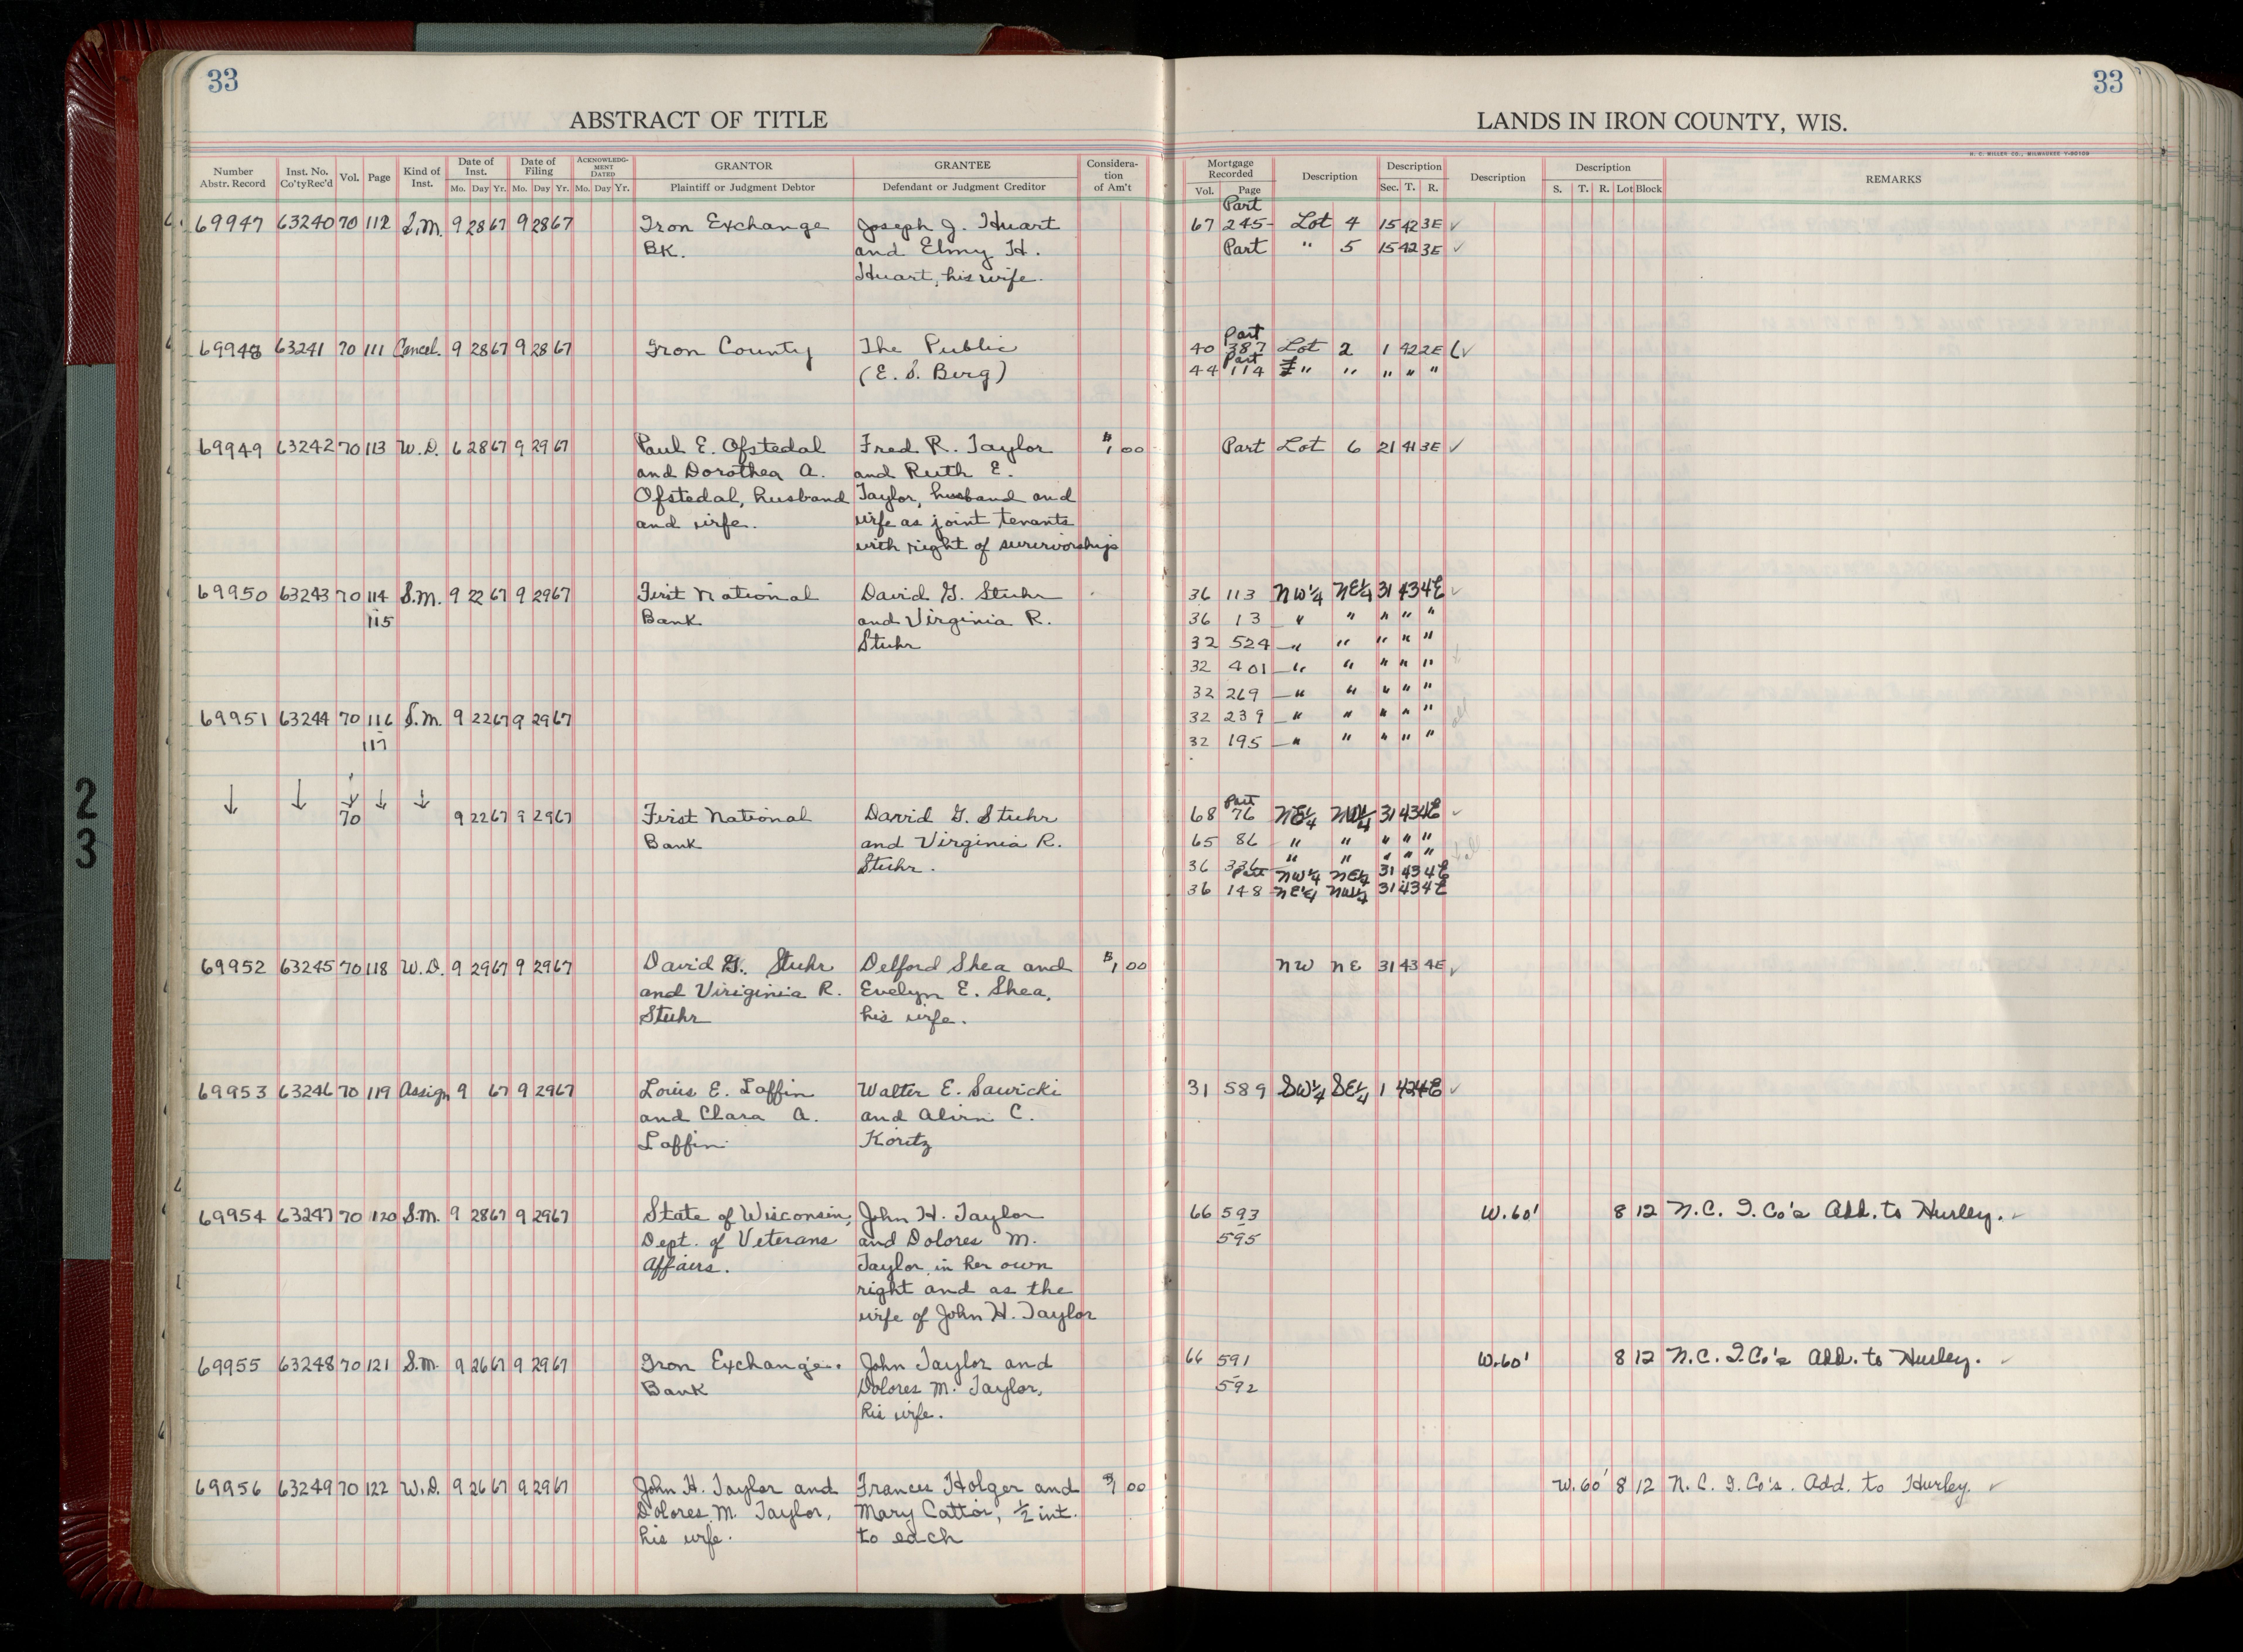 33
33
ABSTRACT OF TITLE
LANDS IN IRON COUNTY, WIS.
H. C. MILLER CO., MILWAUKEE
Number Abstr. Record
Inst. No. Co'ty Rec'd
Vol.
Page
Kind of Inst.
Date of Inst.
Mo. Day Yr.
Date of Filing
Mo. Day Yr.
ACKNOWLEDGMENT DATED
Mo. Day Yr.
GRANTOR
Plaintiff or Judgment Debtor
GRANTEE
Defendant or Judgment Creditor
Consideration of Am't
Mortgage Recorded
Vol. Page
Description
Description
Sec. T. R.
Description
Description
S. T. R. Lot Block
REMARKS
Part
69947 63240 70 112 S.M. 9 28 67 9 28 67 Iron Exchange Joseph J. Huart 67 245 Lot 4 15 42 3E ✓
BK. and Elmy H. Part " 5 15 42 3E ✓
Huart, his wife.
Part
69948 63241 70 111 Cancel. 9 28 67 9 28 67 Iron County The Public 40 387 Lot 2 1 42 2E ✓
Part
(E. S. Berg) 44 114 " " " " "
69949 63242 70 113 W.D. 6 28 67 9 29 67 Paul E. Ofstedal Fred R. Taylor $1 00 Part Lot 6 21 41 3E ✓
and Dorothea A. and Ruth E.
Ofstedal, husband Taylor, husband and
and wife. wife as joint tenants
with right of survivorship
69950 63243 70 114 S.M. 9 22 67 9 29 67 First National David G. Stuhr 36 113 NW¼ NE¼ 31 43 4E ✓
115 Bank and Virginia R. 36 13 " " " " "
Stuhr 32 524 " " " " "
32 401 " " " " "
32 269 " " " " "
69951 63244 70 116 S.M. 9 22 67 9 29 67 32 239 " " " " "
117 32 195 " " " " "
↓ ↓ ↓ ↓ ↓
Part
70 9 22 67 9 29 67 First National David G. Stuhr 68 76 NE¼ NW¼ 31 43 4E ✓
Bank and Virginia R. 65 86 " " " " "
Stuhr. 36 336 " " " " "
Part NW¼ NE¼ 31 43 4E
36 148 NE¼ NW¼ 31 43 4E
69952 63245 70 118 W.D. 9 29 67 9 29 67 David G. Stuhr Delford Shea and $1 00 NW NE 31 43 4E ✓
and Viriginia R. Evelyn E. Shea,
Stuhr his wife.
69953 63246 70 119 Assign 9 67 9 29 67 Louis E. Laffin Walter E. Sawicki 31 589 SW¼ SE¼ 1 42 4E ✓
and Clara A. and Alvin C.
Laffin Koritz
69954 63247 70 120 S.M. 9 28 67 9 29 67 State of Wisconsin, John H. Taylor 66 593 W.60' 8 12 N.C. I. Co's Add. to Hurley. ✓
Dept. of Veterans and Dolores M. 595
Affairs. Taylor, in her own
right and as the
wife of John H. Taylor
69955 63248 70 121 S.M. 9 26 67 9 29 67 Iron Exchange. John Taylor and 66 591 W.60' 8 12 N.C. I. Co's Add. to Hurley. ✓
Bank Dolores M. Taylor, 592
his wife.
69956 63249 70 122 W.D. 9 26 67 9 29 67 John H. Taylor and Frances Holger and $1 00 W.60' 8 12 N.C. I. Co's. Add. to Hurley. ✓
Dolores M. Taylor, Mary Cattoi, ½ int.
his wife. to each
2
3